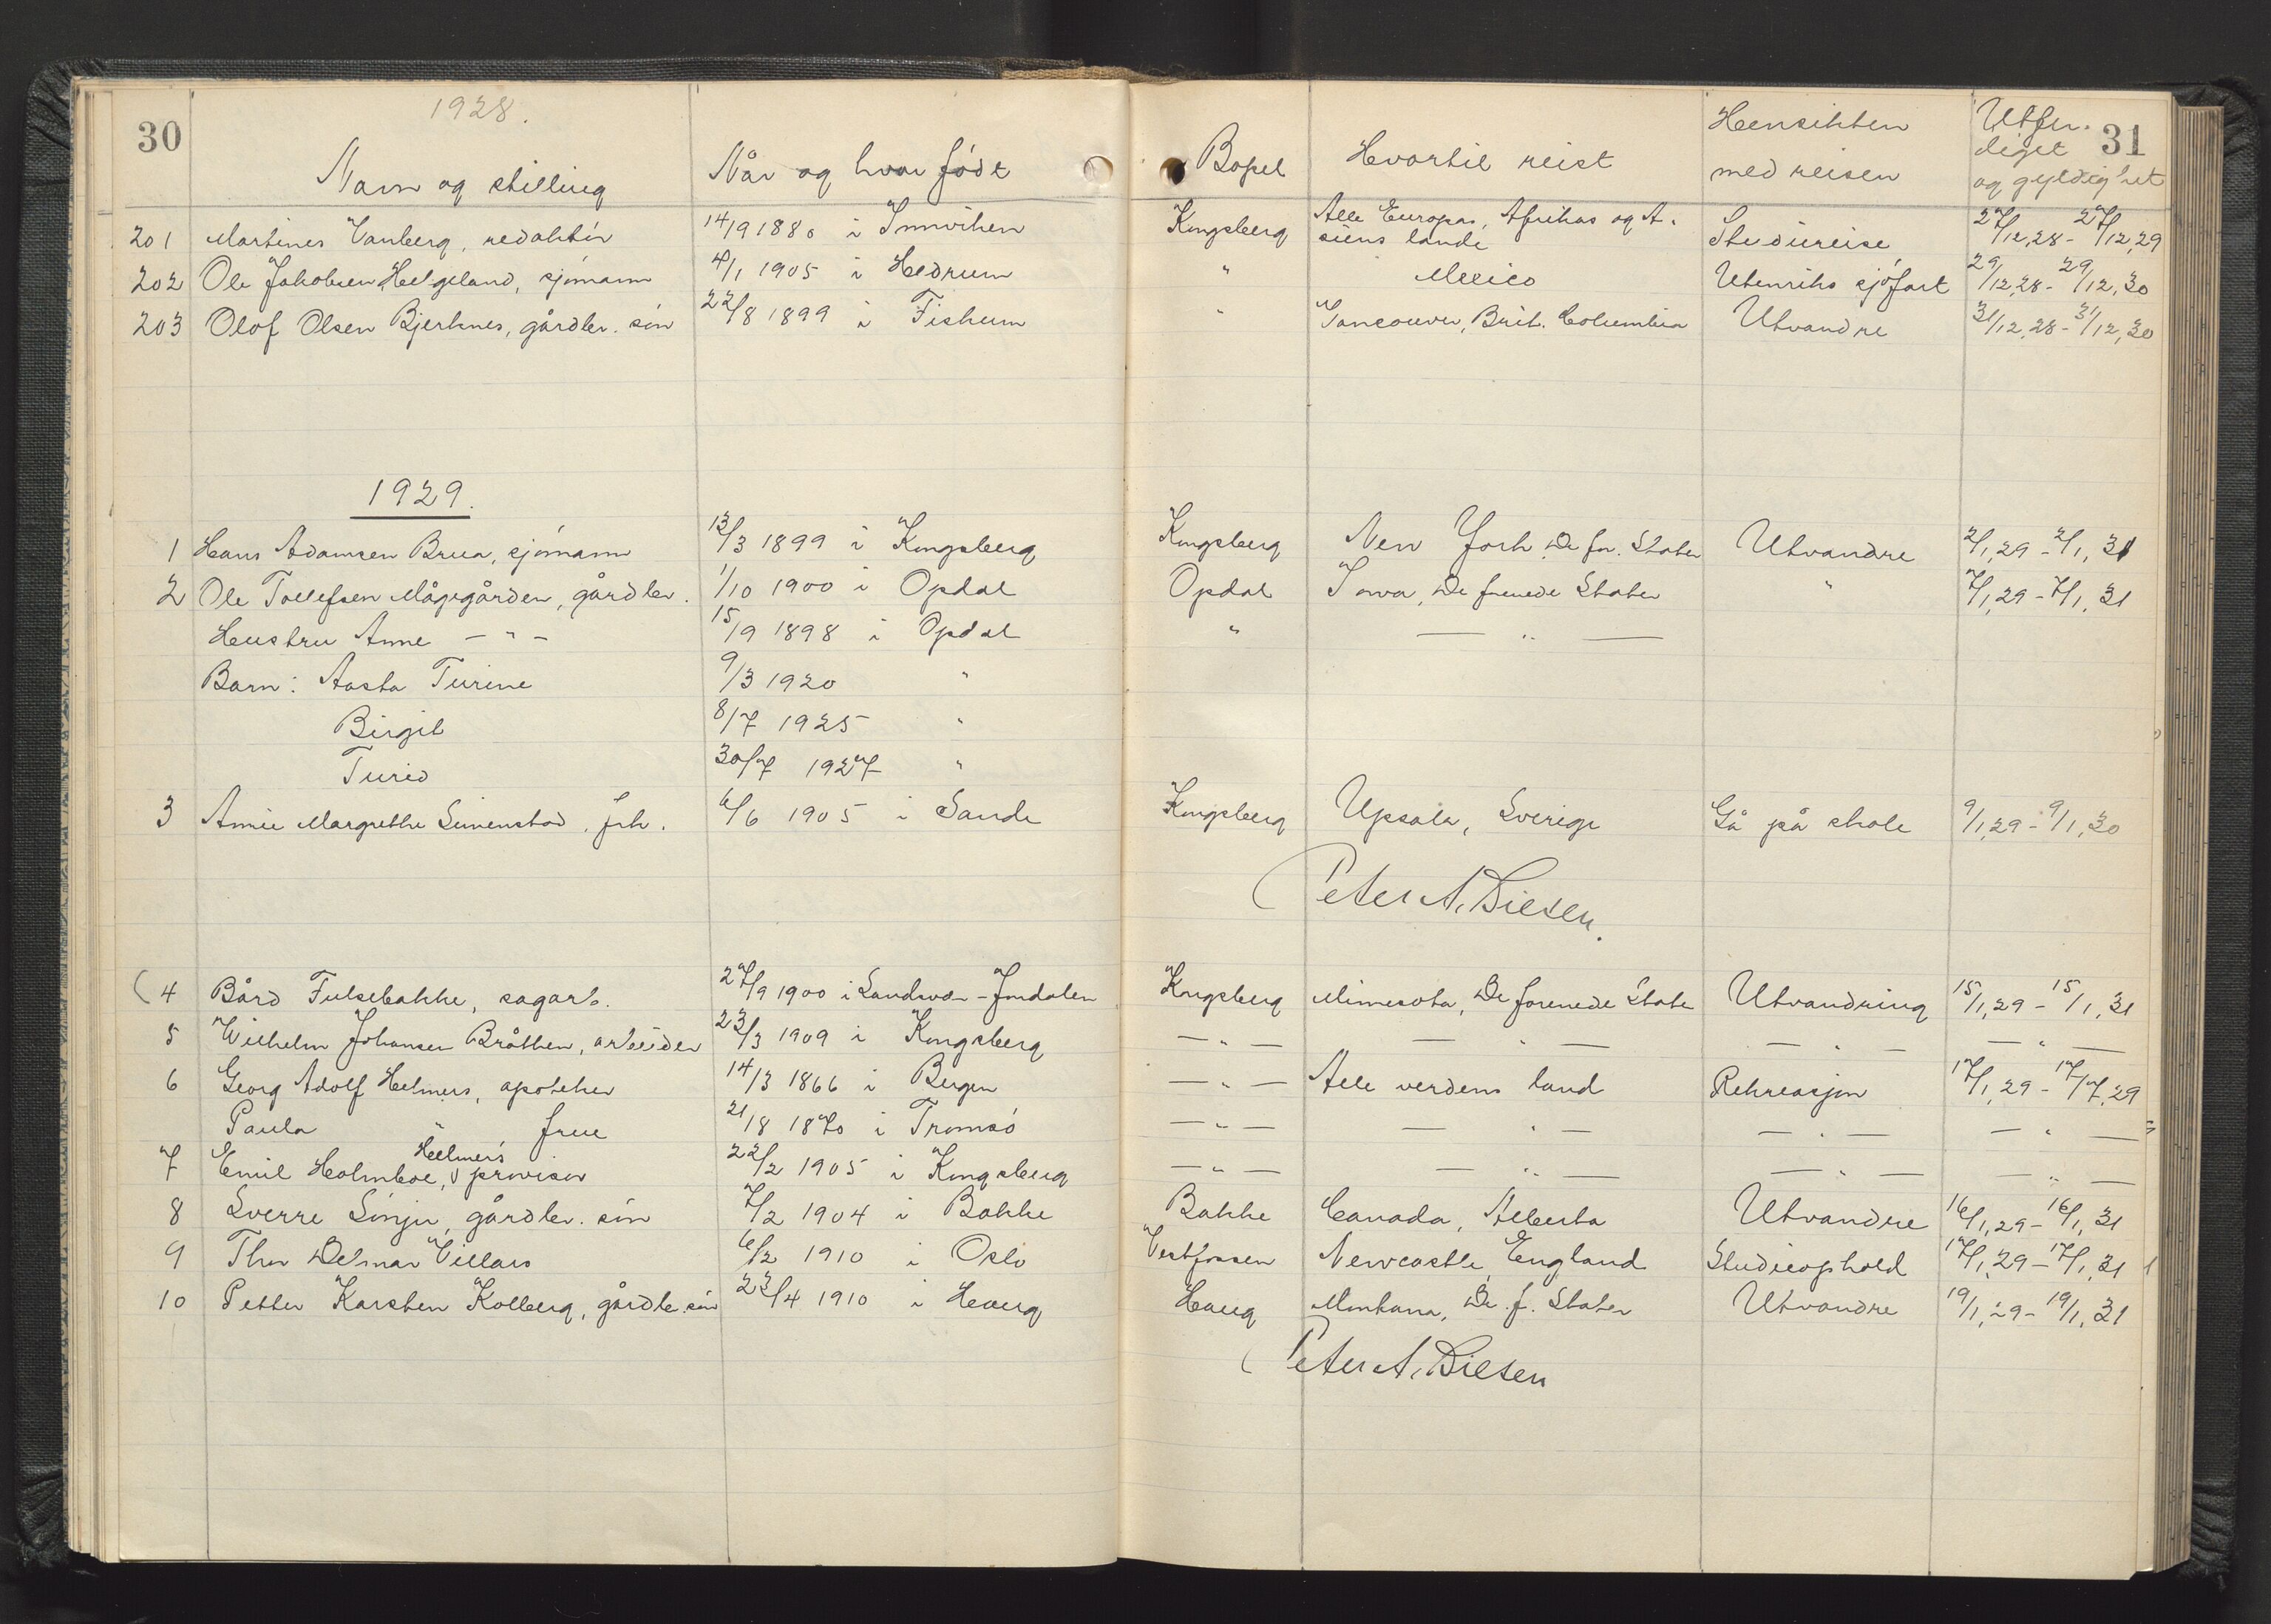 30
1928.
Navn og stilling
Når og hvor født
Bopel
Hvortil reist
Hensikten
med reisen
Utfer-
diget
og gyldighet
31
201 Martines Vanberg, redaktør 14/9 1880 i Innviken Kongsberg Alle Europas, Afrikas og A-
siens lande Studiereise 27/12,28 - 27/12,29
202 Ole Jakobsen Helgeland, sjømann 4/1 1905 i Hedrum " Mexico Utenriks sjøfart 29/12,28 - 29/12,30
203 Olof Olsen Bjerknes, gårdbr. søn 22/8 1899 i Fiskum " Vancouver, Brit. Columbia Utvandre 31/12,28 - 31/12,30
1929.
1 Hans Adamsen Brua, sjømann 13/3 1899 i Kongsberg Kongsberg New York De for. Stater Utvandre 2/1,29 - 2/1,31
2 Ole Tollefsen Mågegården, gårdbr. 1/10 1900 i Opdal Opdal Iowa, De forenede Stater " 7/1,29 - 7/1,31
Hustru Anne — " — 15/9 1898 i Opdal " — " —
Barn: Aasta Turine 9/3 1920 "
Birgit 8/7 1925 "
Turid 30/7 1927 "
3 Annie Margrethe Simenstad, frk. 6/6 1905 i Sande Kongsberg Upsala, Sverige Gå på skole 9/1,29 - 9/1,30
Peter A.
4 Bård Fulsebakke, sagarb. 27/9 1900 i Sandsvær - Jondalen Kongsberg Minnesota, De forenede State Utvandring 15/1,29 - 15/1,31
5 Wilhelm Johansen Bråthen, arbeider 23/3 1909 i Kongsberg — " — — " — — " — — " —
6 Georg Adolf Helmers, apoteker 14/3 1866 i Bergen — " — Alle verdens land Rekreasjon 17/1,29 - 17/7,29
Paula " frue 21/8 1870 i Tromsø — " — — " — — " — — " —
Helmers
7 Emil Holmboe, v provisor 22/2 1905 i Kongsberg — " — — " — — " — — " —
8 Sverre Sønju, gårdbr. søn 7/2 1904 i Bakke Bakke Canada, Alberta Utvandre 16/1,29 - 16/1,31
9 Thor Delmar Villars 6/2 1910 i Oslo Vestfossen Newcastle, England Studieophold 17/1,29 - 17/1,31
10 Petter Karsten Kolberg, gårdbr. søn 23/4 1910 i Haug Haug Montana, De f. Stater Utvandre 19/1,29 - 19/1,31
Peter A.